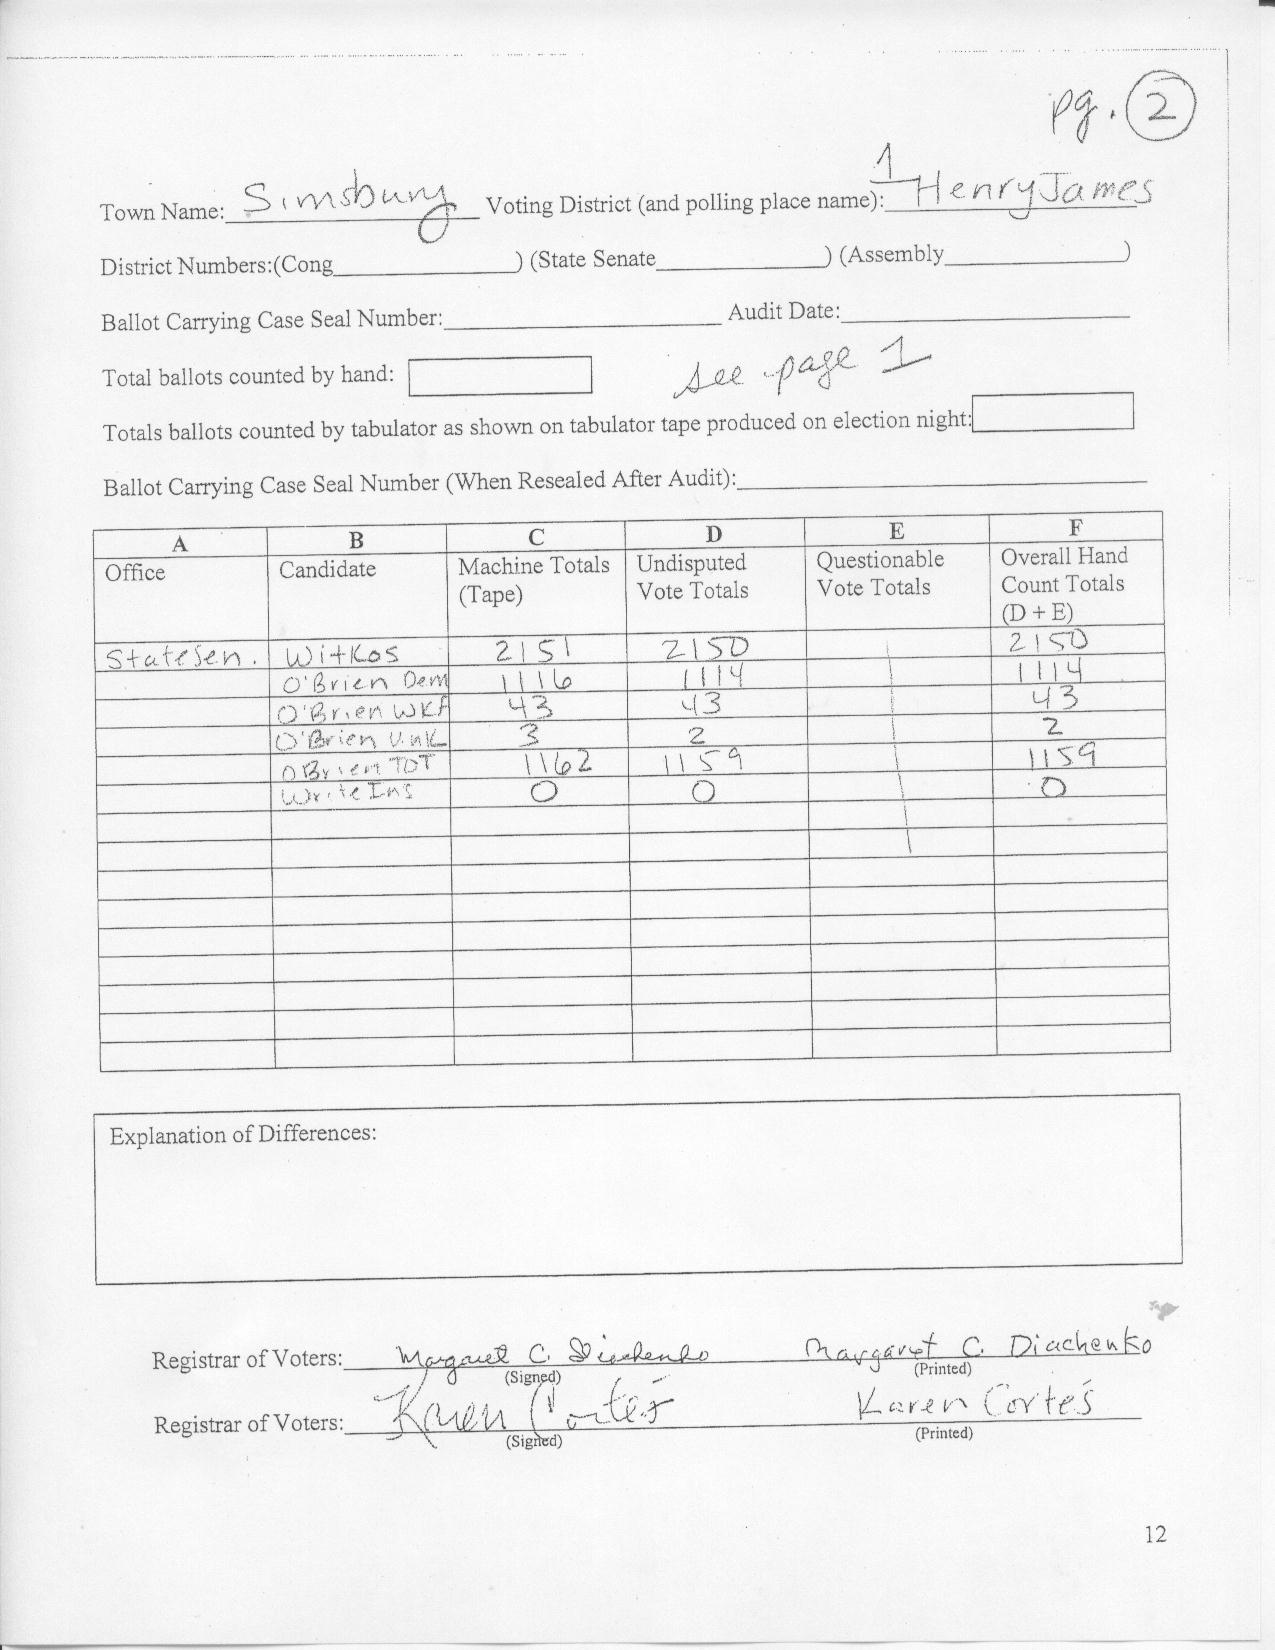 pg. 2
Town Name: Simsbury Voting District (and polling place name): 1 Henry James
District Numbers:(Cong ) (State Senate ) (Assembly )
Ballot Carrying Case Seal Number: Audit Date:
Total ballots counted by hand: see page 1
Totals ballots counted by tabulator as shown on tabulator tape produced on election night:
Ballot Carrying Case Seal Number (When Resealed After Audit):
A B C D E F
Office Candidate Machine Totals Undisputed Questionable Overall Hand
(Tape) Vote Totals Vote Totals Count Totals
(D + E)
State Sen. Witkos 2151 2150 2150
O'Brien Dem 1116 1114 1114
O'Brien WKF 43 43 43
O'Brien UnK 3 2 2
O'Brien TOT 1162 1159 1159
Write Ins 0 0 0
Explanation of Differences:
Registrar of Voters: Margaret C. Diachenko Margaret C. Diachenko
(Signed) (Printed)
Registrar of Voters: Karen Cortés Karen Cortés
(Signed) (Printed)
12